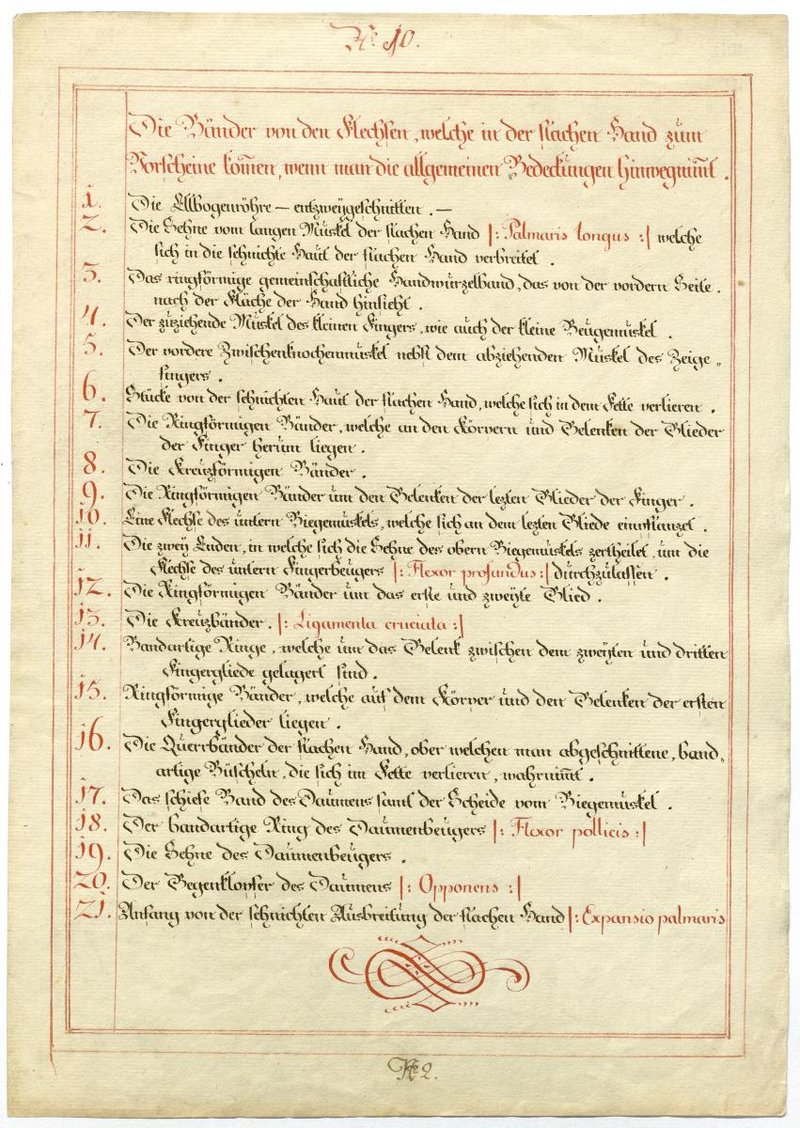 No. 10.
Die Bänder von den Flechsen, welche in der flachen Hand zum
Vorscheine kom̄en, wenn man die allgemeinen Bedeckungen hinwegnim̄t.
1. Die Ellbogenröhre — entzweygeschnitten. —
2. Die Sehne vom langen Muskel der flachen Hand |: Palmaris longus :| welche
sich in die sehnichte Haut der flachen Hand verbreitet.
3. Das ringförmige gemeinschaftliche Handwurzelband, das von der vordern Seite.
nach der Fläche der Hand hinsieht.
4. Der zuziehende Muskel des kleinen Fingers, wie auch der kleine Beugemuskel.
5. Der vordere Zwischenknochenmuskel nebst dem abziehenden Muskel des Zeige-
fingers.
6. Stücke von der sehnichten Haut der flachen Hand, welche sich in dem Fette verlieren.
7. Die Ringförmigen Bänder, welche an den Körpern und Gelenken der Glieder
der Finger herum liegen.
8. Die Kreuzförmigen Bänder.
9. Die Ringförmigen Bänder um den Gelenken der lezten Glieder der Finger.
10. Eine Flechse des untern Biegemuskels, welche sich an dem lezten Gliede einpflanzet.
11. Die zwey Enden, in welche sich die Sehne des obern Biegemuskels zertheilet, um die
Flechse des untern Fingerbeugers |: Flexor profundus :| durchzulassen.
12. Die Ringförmigen Bänder um das erste und zweyte Glied.
13. Die Kreuzbänder. |: Ligamenta cruciata :|
14. Bandartige Ringe, welche um das Gelenk zwischen dem zweyten und dritten
Fingergliede gelagert sind.
15. Ringförmige Bänder, welche auf dem Körper und den Gelenken der ersten
Fingerglieder liegen.
16. Die Querrbänder der flachen Hand, ober welchen man abgeschnittene, band-
artige Büscheln, die sich im Fette verlieren, wahrnim̄t.
17. Das schiefe Band des Daumens samt der Scheide vom Biegemuskel.
18. Der bandartige Ring des Daumenbeugers |: Flexor pollicis :|
19. Die Sehne des Daumenbeugers.
20. Der Gegenklopfer des Daumens |: Opponens :|
21. Anfang von der sehnichten Ausbreitung der flachen Hand |: Expansio palmaris
No 2.